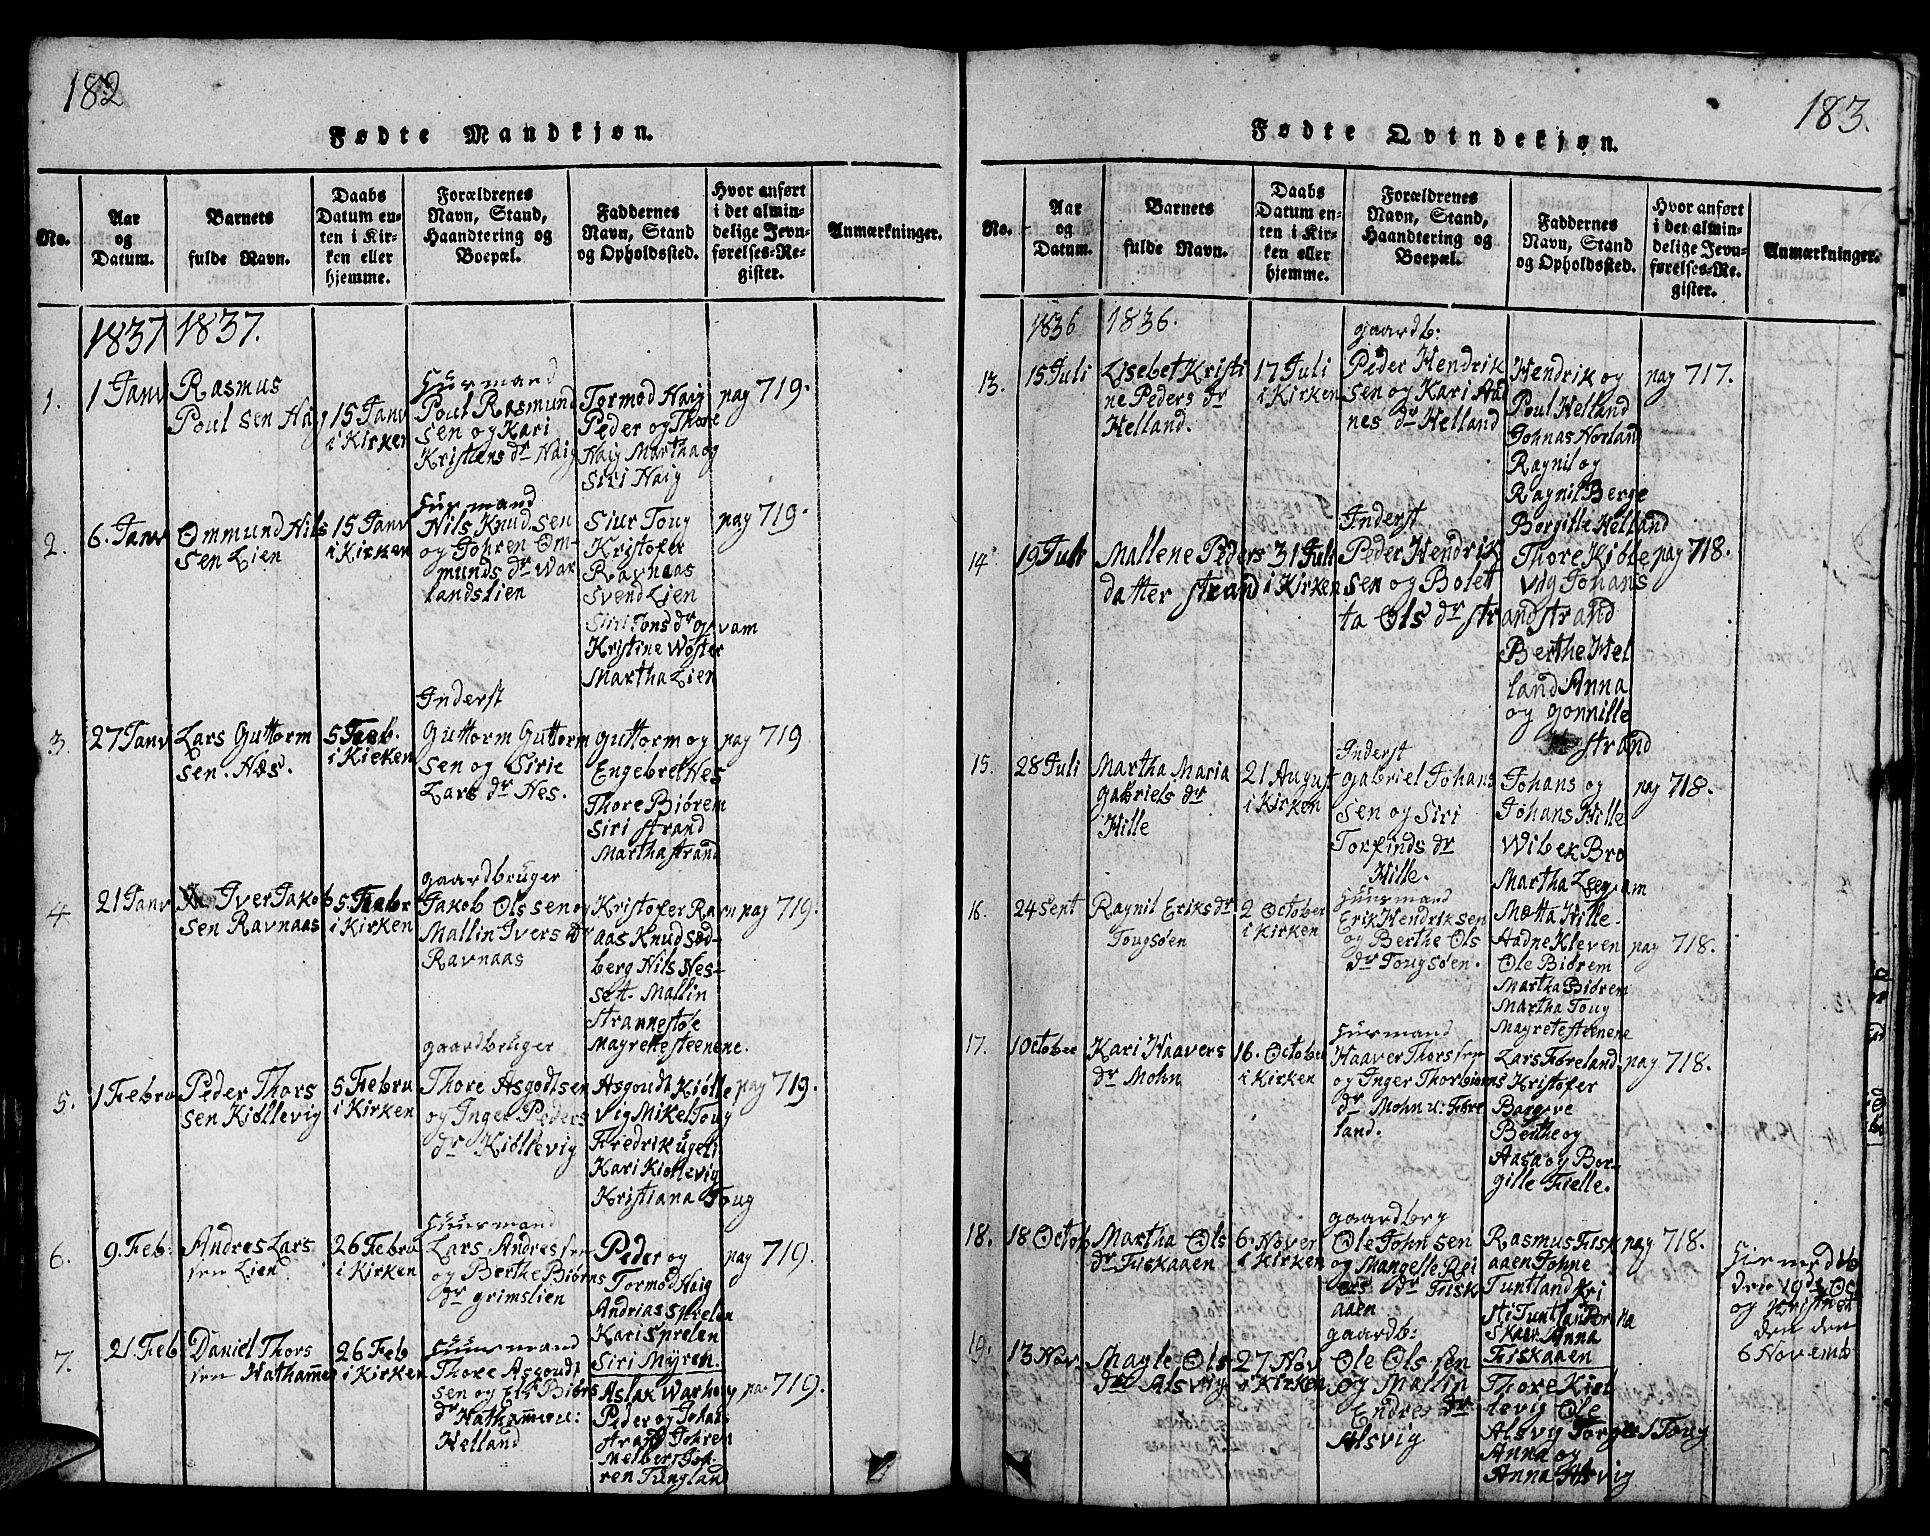 182
Fødte Mandkjøn.
No.
Aar
og
Datum.
Barnets
fulde Navn.
Daabs
Datum en-
ten i Kir-
ken eller
hjemme.
Forældrenes
Navn, Stand,
Haandtering og
Boepæl.
Faddernes
Navn, Stand
og Opholdssted.
Hvor anført
i det almin-
delige Jevn-
førelses-Re-
gister.
Anmærkninger.
1837
1837.
1.
1 Janv
Rasmus
Poul sen Haig
15 Janv
i Kirken
Huusmand
Poul Rasmund
sen og Kari
Kristens dr Haig
Tormod Haig
Peder og Thore
Haig Martha og
Siri Haig
pag 719.
2.
6. Janv
Ommund Nils
sen Lien
15 Janv
i Kirken
Huusmand
Nils Knud sen
og Johren Om-
munds dr War
landslien
Siur Toug
Kristofer
Ravnaas
Svend Lien
Siri Tons dr Qvam
Kristine Woster
Martha Lien
pag 719.
3.
27 Janv
Lars Guttorm
sen. Næs.
5 Feb.
i Kirken
Inderst
Guttorm Guttorm
sen og Sirie
Lars dr Nes.
Guttorm og
Engebret Nes
Thore Biørem
Siri Strand
Martha Strand
pag 719
4
21 Janv
Iver Jakob
sen Ravnaas
5 Febr
i Kirken
gaardbruger
Jakob Ols sen og
Mallin Ivers dr
Ravnaas
Kristofer Ravn
aas Knud Sæd-
berg Nils Nes-
set. Mallin
Strannestøe
Magrette Steenene.
pag 719.
5.
1 Febru
Peder Thors
sen Kiøllevig
5 Febru
i Kirken
gaardbruger
Thore Asgodtsen
og Inger Peders
dr Kiøllevig
Asgoudt Kiølle
vig Mikel Toug
Fredrik Ugeli
Kari Kiøllevig
Kristiana Toug
pag 719.
6.
9. Feb:
Andres Lars
sen Lien
26 Febru
i Kirken
Huusmand
Lars Andres sen
og Berthe Biørns
dr Grimslien
Peder og
Tormod Haig
Andrias Sprelen
Kari Sprelen
Siri Myren.
pag 719.
7.
21 Feb
Daniel Thors
sen Hathammer
26 Feb
i Kirken
Huusmand
Thore Asgoudt
sen og Els Biørs
dr Hathammer u:
Helland
Aslak Warhoug
Peder og Johans
Johren
Melberg Joh
ren Tungland
pa. 719.
183.
Fødte Qvindekjøn.
No.
Aar
og
Datum.
Barnets
fulde Navn.
Daabs
Datum en-
ten i Kir-
ken eller
hjemme.
Forældrenes
Navn, Stand,
Haandtering og
Boepæl.
Faddernes
Navn, Stand
og Opholdssted.
Hvor anført
i det almin-
delige Jevn-
førelses-Re-
gister.
Anmærkninger.
1836
1836.
13.
15 Juli
Lisebet Kristi
ne Peders dr
Helland.
17 Juli
i Kirken
gaardb:
Peder Hendrik
sen og Kari Had
nes dr Helland
Hendrik og
Poul Helland
Johnas Norland
Ragnil og
Ragnil Berge
Borgille Helland
pag 717.
14
19 Juli
Mallene Peders
datter Strand
31 Juli
i Kirken
Inderst
Peder Hendrik
sen og Bolet
ta Ols dr Strand
Thore Kible
vig Johans
Strand
Berthe Hel
land Anna
og Gonnille
Strand
pag 718.
15.
28 Juli
Martha Maria
Gabriels dr
Hille
21 August
i Kirken
Inderst
Gabriel Johans
sen og Siri
Torfinds dr
Hille.
Johans og
Johans Hille
Wibek Bro
Martha Leeqvam
Metta Hille
pag 718.
16.
24 Sept
Ragnil Eriks dr
Tougsøen
2 October
i Kirken
Huusmand
Erik Hendriksen
og Berthe Ols
dr Tougsøen.
Hadne Kleven
Ole Biørem
Martha Biørem
Martha Toug
Magrete Steenene
pag 718.
17.
1 October
Kari Haavers
dr Mohn
16. October
i Kirken
Huusmand
Haaver Thors sen
og Inger Thorbiorns
dr Mohn u: Føre
land.
Lars Føreland
Kristofer
Bargeve
Berthe og
Aasa og Bor-
gille Fielle.
pag 718.
18.
18 Octob
Martha Ols
dr Fiskaaen
6. Nover
i Kirken
gaardbrg
Ole John sen
og Mangelle Rei
ers dr Fisk
aaen
Rasmus Fisk
aaen Johne
Tuntland Kri
sti Tuntlan Berthe
Skaar Anna
Fiskaaen
pag 718.
Hiemedøb
den 19de Oc
og Kristnet
den den
6 Novemb
19.
13 Nov.
Magle Ols
dr Alsvig
27. Nov
i Kirken
gaardb:
Ole Ols sen
og Mallin
Endres dr
Alsvig
Thore Kiøl
levig Ole
Alsvig Torger Toug
Anna og
Anna Alsvig